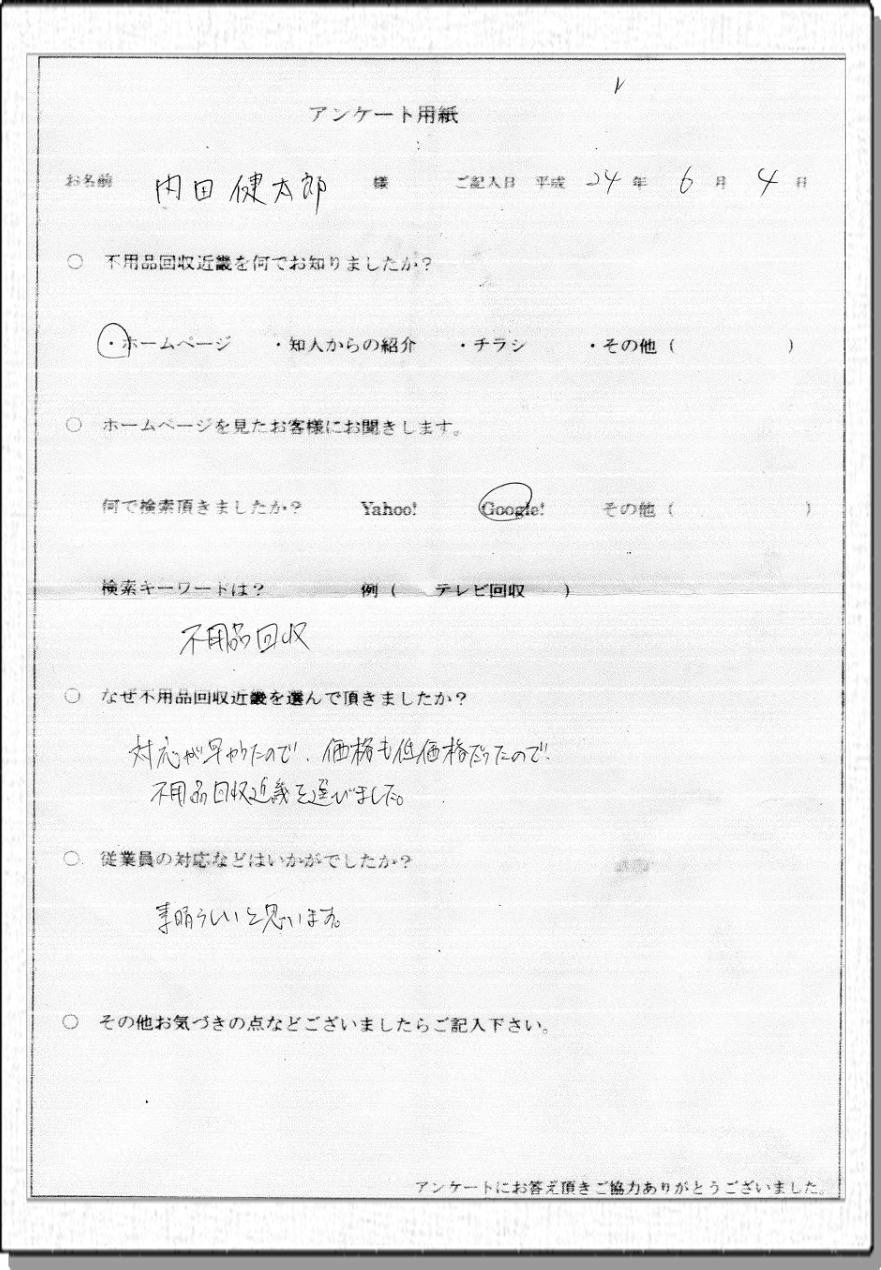 アンケート用紙
お名前 内田 健太郎 様 ご記入日 平成 24 年 6 月 4 日
○ 不用品回収近畿を何でお知りましたか？
・ホームページ ・知人からの紹介 ・チラシ ・その他（ ）
○ ホームページを見たお客様にお聞きします。
何で検索頂きましたか？ Yahoo! Google! その他（ ）
検索キーワードは？ 例（ テレビ回収 ）
不用品回収
○ なぜ不用品回収近畿を選んで頂きましたか？
対応が早かったので、価格も低価格だったので
不用品回収近畿を選びました。
○ 従業員の対応などはいかがでしたか？
素晴らしいと思います。
○ その他お気づきの点などございましたらご記入下さい。
アンケートにお答え頂きご協力ありがとうございました。